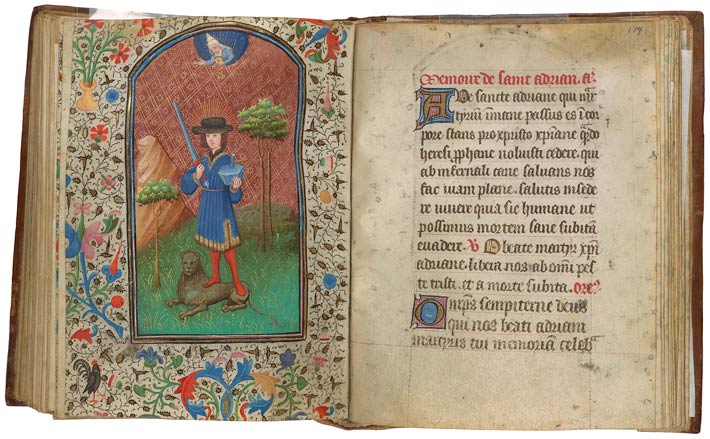 Memoire de saint adrian. añ.
Ave sancte adriane qui mar
tyrium imane passus es i cor
pore stans pro xpristo xpiane qdo
heresi prophane noluisti cedere. qui
ab infernali cane saluans nos
fac iuam plane. salutis in sede
re viuere quia sic humane ut
possimus mortem sane subita
euadere. V O beate martyr xpi
adriane. libera nos ab omi pes
te tristi. et a morte subita. Ore.
Omps sempiterne deus
qui nos beati adriani
martyris tui memoriā celeb